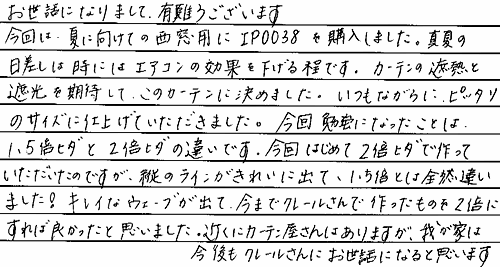 お世話になりまして、有難うございます
今回は、夏に向けての西窓用にIP0038を購入しました。真夏の
日差しは時にはエアコンの効果を下げる程です。カーテンの遮熱と
遮光を期待して、このカーテンに決めました。いつもながらに、ピッタリ
のサイズに仕上げていただきました。今回勉強になったことは、
1.5倍ヒダと2倍ヒダの違いです。今回はじめて2倍ヒダで作って
いただいたのですが、縦のラインがきれいに出て、1.5倍とは全然違い
ました!キレイなウェーブが出て、今までクレールさんで作ったものを2倍に
すれば良かったと思いました。近くにカーテン屋さんはありますが、我が家は
今後もクレールさんにお世話になると思います